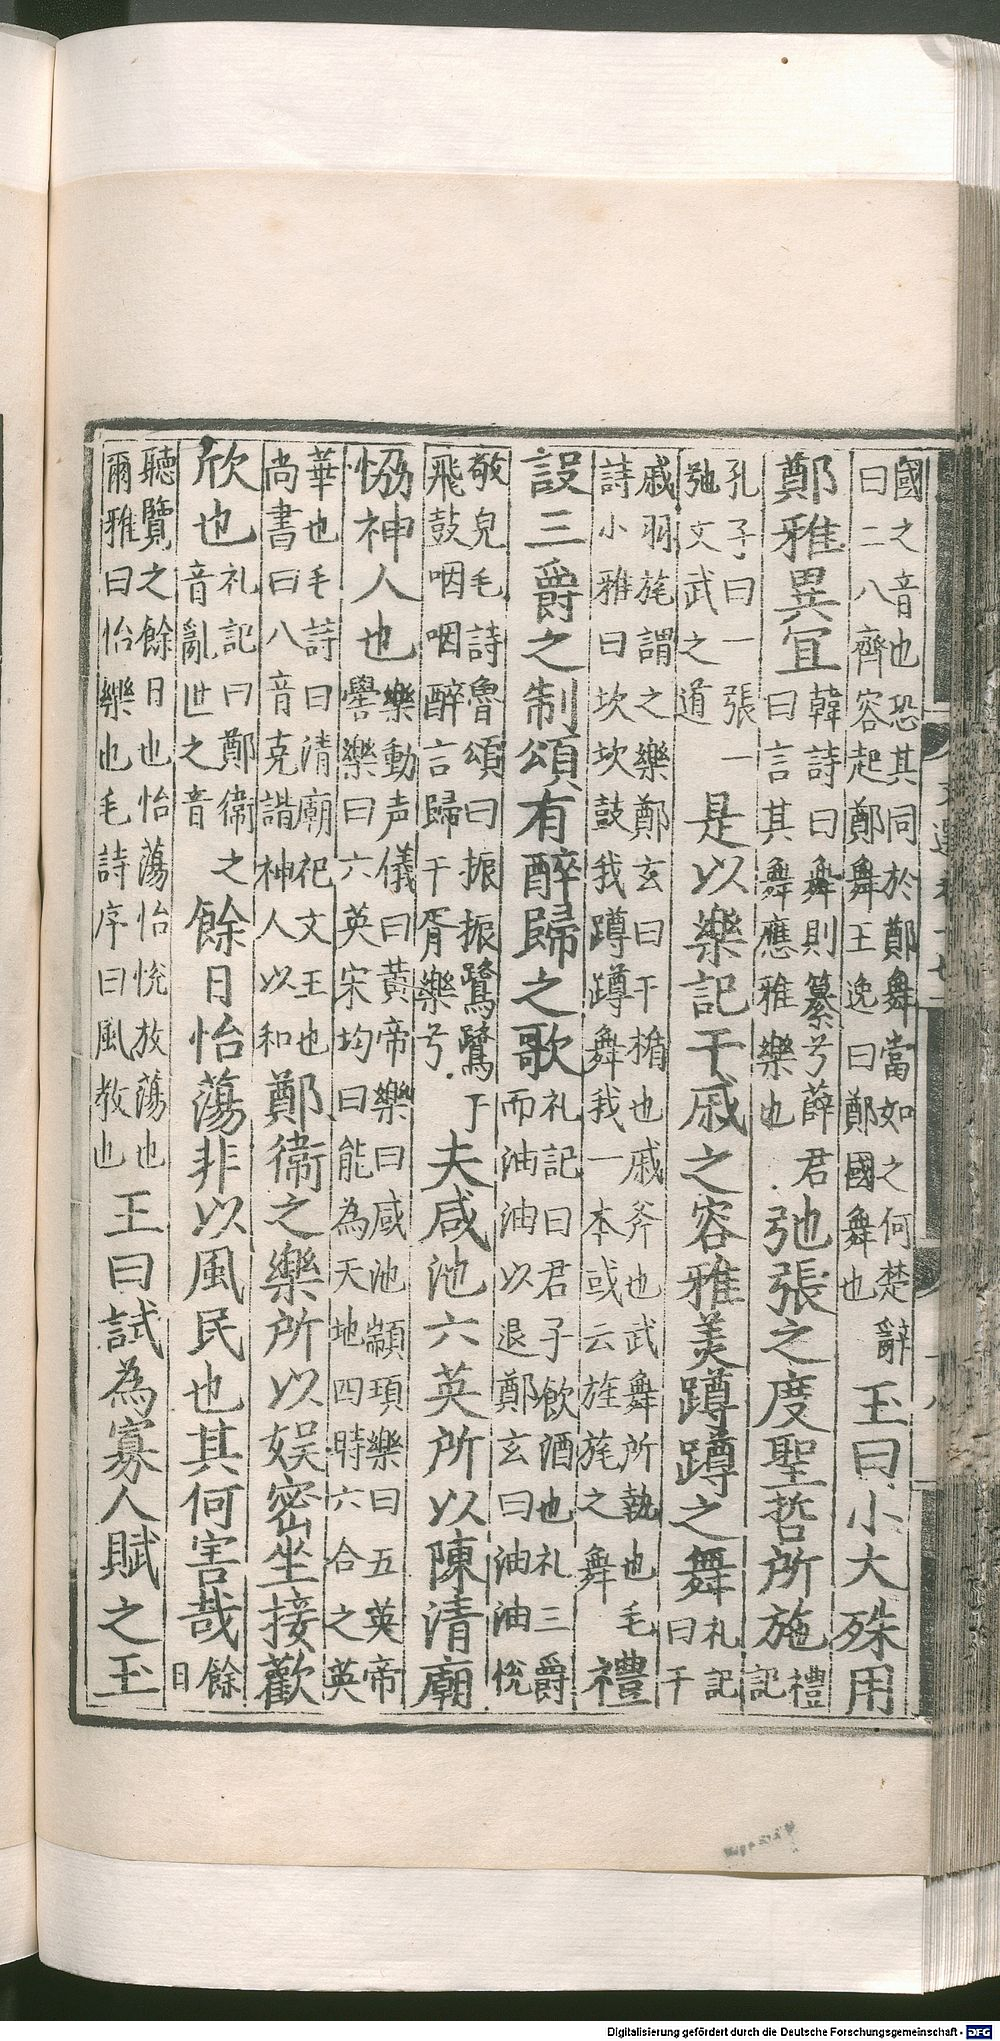 國之音也恐其同於鄭舞當如之何楚辭
曰二八齊容起鄭舞王逸曰鄭國舞也
王曰小大殊用
鄭雅異宜
韓詩曰舞則纂兮薛君
曰言其舞應雅樂也
弛張之度聖哲所施
禮
記
孔子曰一張一
弛文武之道
是以樂記干戚之容雅美蹲蹲之舞
礼記
曰干
戚羽旄謂之樂鄭玄曰干楯也戚斧也武舞所執也毛
詩小雅曰坎坎鼓我蹲蹲舞我一本或云旌旄之舞
禮
設三爵之制頌有醉歸之歌
礼記曰君子飲酒也礼三爵
而油油以退鄭玄曰油油悅
敬皃毛詩魯頌曰振振鷺鷺于
飛鼓咽咽醉言歸于胥樂兮
夫咸池六英所以陳清廟
恊神人也
樂動声儀曰黃帝樂曰咸池顓頊樂曰五英帝
嚳樂曰六英宋均曰能為天地四時六合之英
華也毛詩曰清廟祀文王也
尚書曰八音克諧神人以和
鄭衛之樂所以娛密坐接歡
欣也
礼記曰鄭衛之
音亂世之音
餘日怡蕩非以風民也其何害哉
餘
日
聽覽之餘日也怡蕩怡悅放蕩也
爾雅曰怡樂也毛詩序曰風教也
王曰試為寡人賦之玉
Digitalisierung gefördert durch die Deutsche Forschungsgemeinschaft - DFG